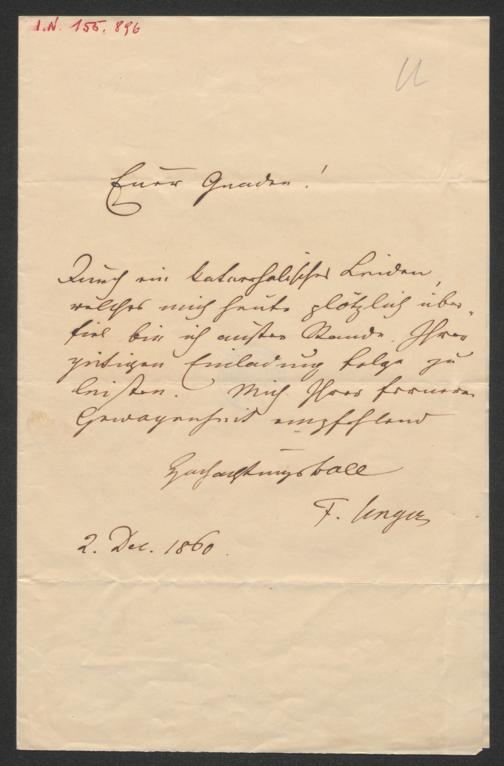 I.N. 155.896
U
Euer Gnaden!
Durch ein katarrhalisches Leiden,
welches mich heute plötzlich über-
fiel bin ich außer Stande Ihrer
gütigen Einladung Folge zu
leisten. Mich Ihrer ferneren
Gewogenheit empfehlend
Hochachtungsvoll
F. Unger
2. Dec. 1860.